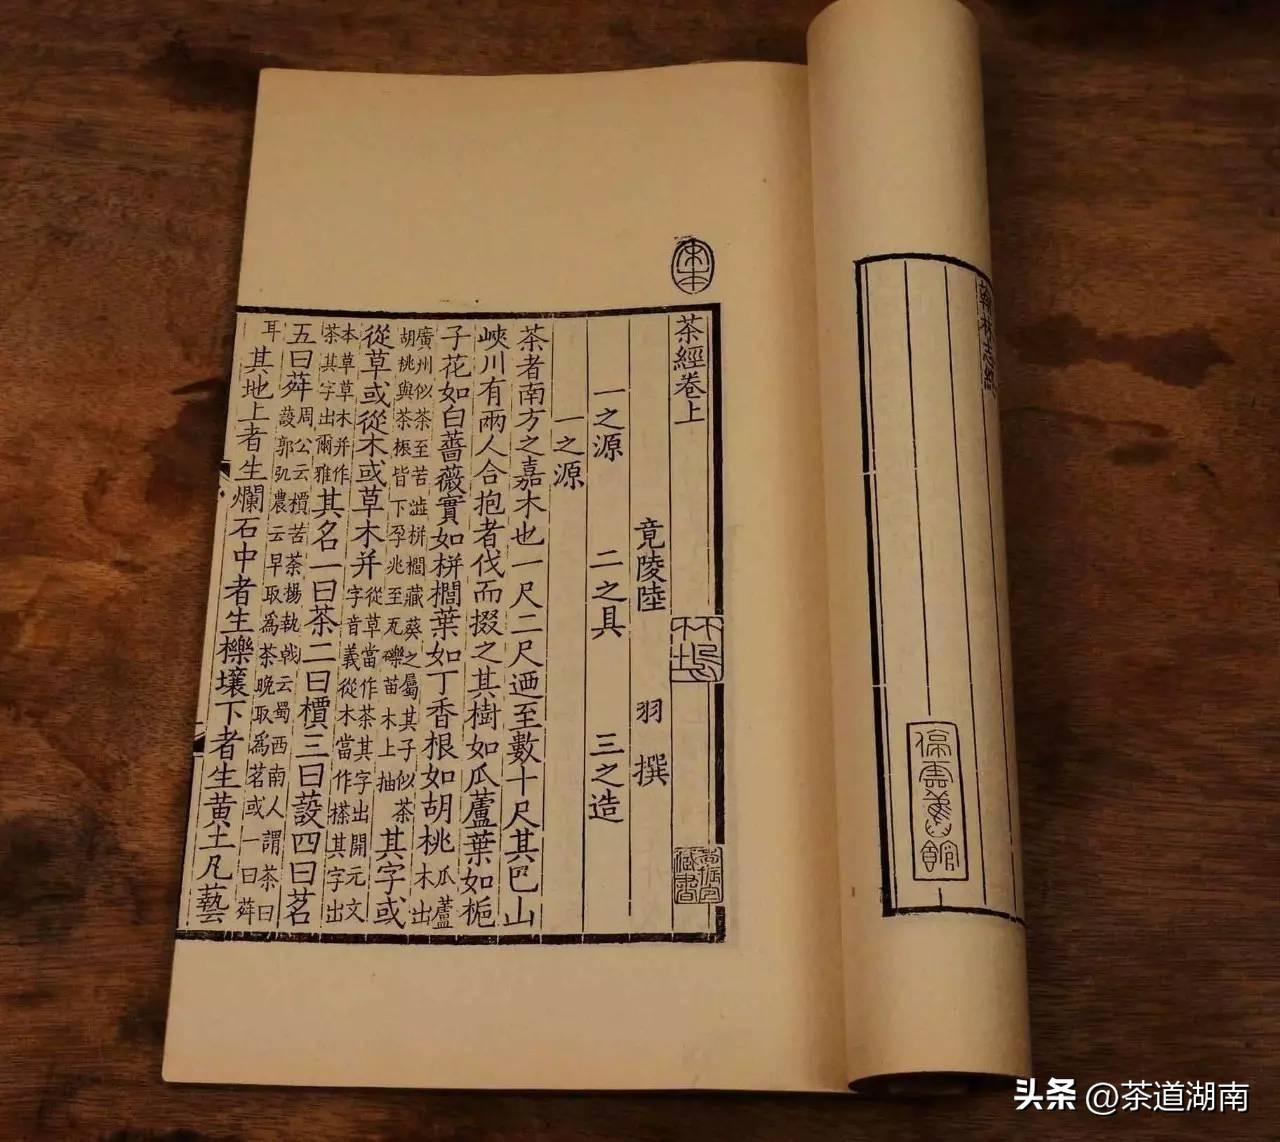 翰林志終
宋本
茶經卷上
竟陵陸 羽 撰
一之源 二之具 三之造
一之源
茶者南方之嘉木也一尺二尺迺至數十尺其巴山
峽川有兩人合抱者伐而掇之其樹如瓜蘆葉如梔
子花如白薔薇實如栟櫚葉如丁香根如胡桃瓜蘆木出
廣州似茶至苦澁栟櫚藏葵之屬其子似茶胡桃與茶根皆下孕兆至瓦礫苗木上抽其字或
從草或從木或草木并從草當作茶其字出開元文字音義從木當作搽其字出
本草草木并作荼其字出爾雅其名一曰茶二曰檟三曰蔎四曰茗
五曰荈周公云檟苦荼楊執戟云蜀西南人謂茶曰蔎郭弘農云早取爲茶晚取爲茗或一曰荈
耳其地上者生爛石中者生櫟壤下者生黃土凡藝
头条 @茶道湖南